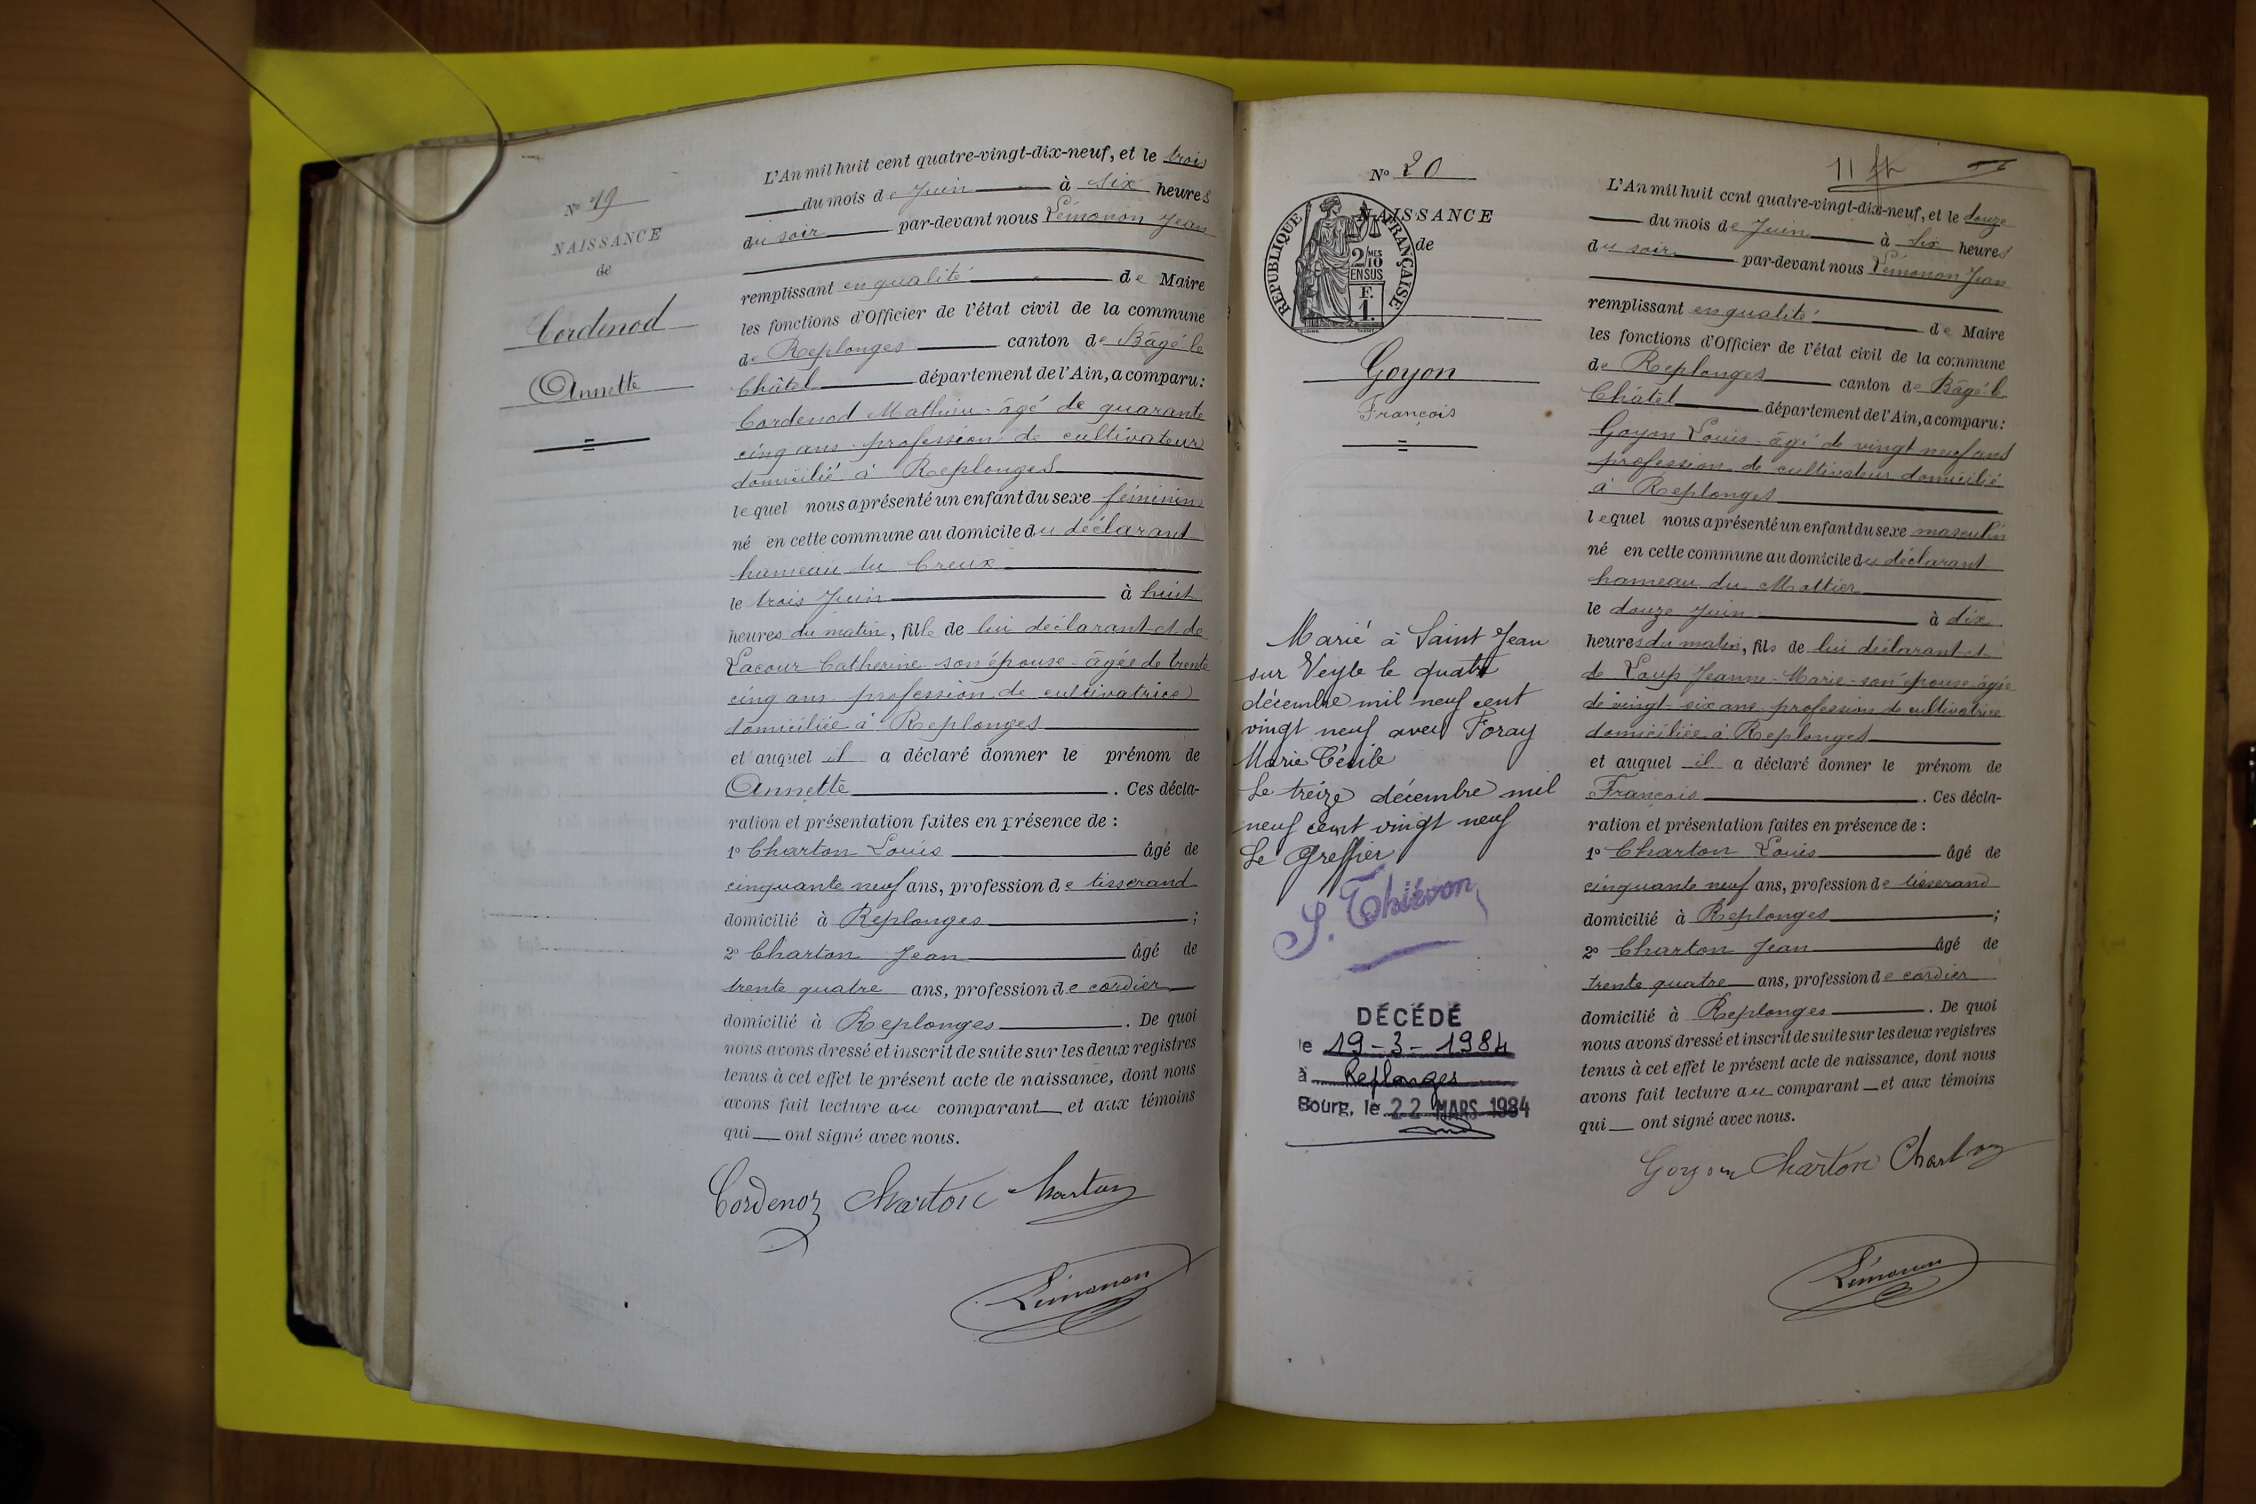 N° 19
NAISSANCE
de
Cordenod
Annette
L'An mil huit cent quatre-vingt-dix-neuf, et le trois
du mois de Juin à six heures
du soir par-devant nous Lémonon Jean
remplissant en qualité de Maire
les fonctions d'Officier de l'état civil de la commune
de Replonges canton de Bâgé-le
Châtel département de l'Ain, a comparu:
Cordenod Mathieu âgé de quarante
cinq ans profession de cultivateur
domicilié à Replonges
lequel nous a présenté un enfant du sexe féminin
né en cette commune au domicile du déclarant
hameau du Creux
le trois Juin à huit
heures du matin, fille de lui déclarant et de
Lacour Catherine son épouse âgée de trente
cinq ans profession de cultivatrice
domiciliée à Replonges
et auquel il a déclaré donner le prénom de
Annette. Ces décla-
ration et présentation faites en présence de :
1° Charton Louis âgé de
cinquante neuf ans, profession de tisserand
domicilié à Replonges ;
2° Charton Jean âgé de
trente quatre ans, profession de cordier
domicilié à Replonges. De quoi
nous avons dressé et inscrit de suite sur les deux registres
tenus à cet effet le présent acte de naissance, dont nous
avons fait lecture au comparant et aux témoins
qui ont signé avec nous.
Cordenoz Charton Charton
Lémonon
N° 20
NAISSANCE
de
RÉPUBLIQUE FRANÇAISE
2 MES
10
EN SUS
F.
1.
Goyon
François
Marié à Saint Jean
sur Veyle le quatre
décembre mil neuf cent
vingt neuf avec Foray
Marie Cécile
Le treize décembre mil
neuf cent vingt neuf
Le Greffier
S. Thiévon
DÉCÉDÉ
le 19-3-1984
à Replonges
Bourg, le 22 MARS 1984
11
L'An mil huit cent quatre-vingt-dix-neuf, et le douze
du mois de Juin à six heures
du soir par-devant nous Lémonon Jean
remplissant en qualité de Maire
les fonctions d'Officier de l'état civil de la commune
de Replonges canton de Bâgé-le
Châtel département de l'Ain, a comparu:
Goyon Louis âgé de vingt neuf ans
profession de cultivateur domicilié
à Replonges
lequel nous a présenté un enfant du sexe masculin
né en cette commune au domicile du déclarant
hameau du Mottier
le douze Juin à dix
heures du matin, fils de lui déclarant et
de Loup Jeanne-Marie son épouse âgée
de vingt-six ans profession de cultivatrice
domiciliée à Replonges
et auquel il a déclaré donner le prénom de
François. Ces décla-
ration et présentation faites en présence de :
1° Charton Louis âgé de
cinquante neuf ans, profession de tisserand
domicilié à Replonges ;
2° Charton Jean âgé de
trente quatre ans, profession de cordier
domicilié à Replonges. De quoi
nous avons dressé et inscrit de suite sur les deux registres
tenus à cet effet le présent acte de naissance, dont nous
avons fait lecture au comparant et aux témoins
qui ont signé avec nous.
Goyon Charton Charton
Lémonon